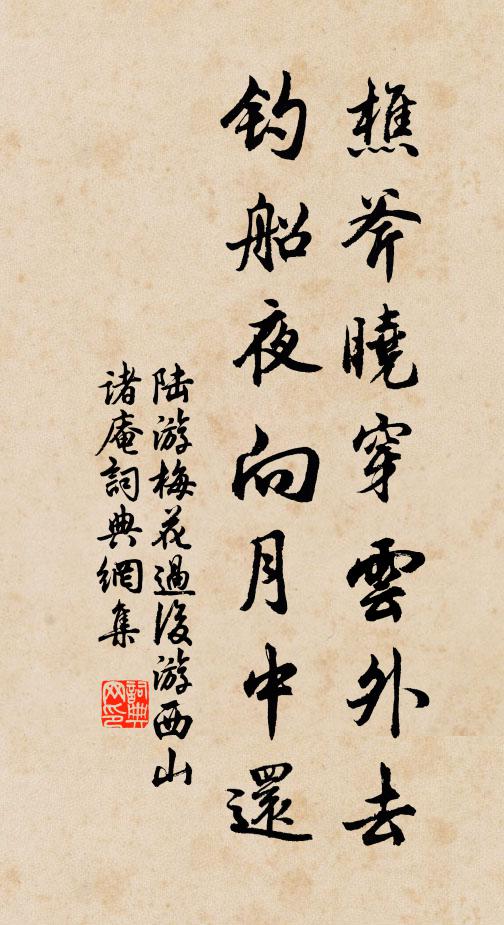 樵斧曉穿雲外去
釣船夜向月中還
陆游梅花過後游西山
诸庵詞典網集
詞典网印